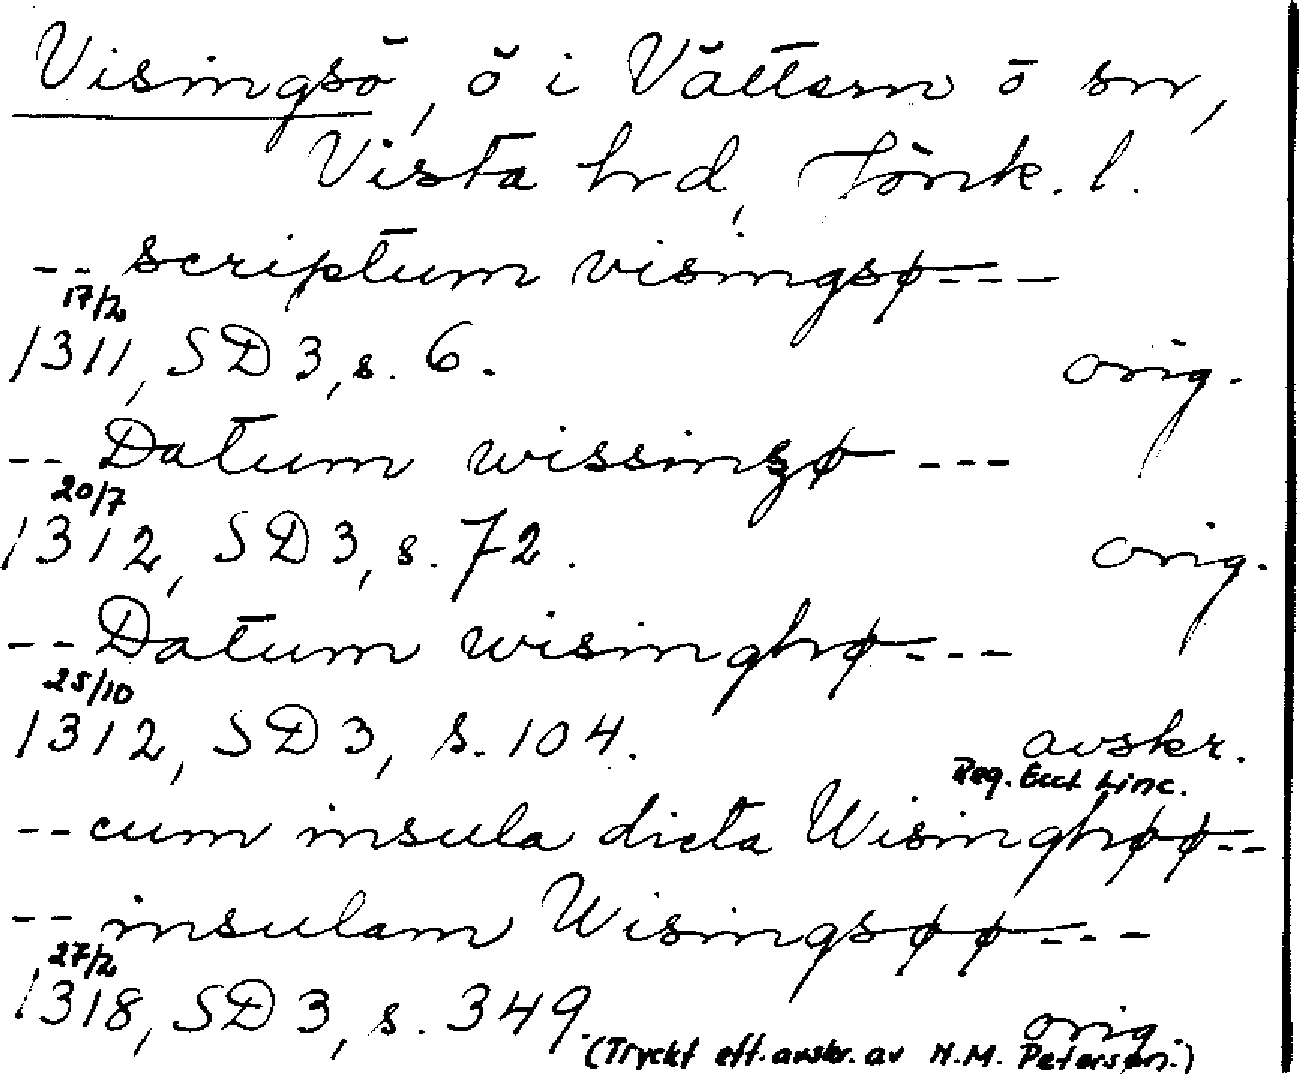 Visingsö, ö i Vättern o sn,
Vista hrd, Jönk. l.
-- scriptum visingsø---
17/2
1311, SD 3, s. 6. orig.
-- Datum wissingzø ---
20/7
1312, SD 3, s. 72. orig.
-- Datum wisinghø---
25/10
1312, SD 3, s. 104. avskr.
Reg. Eccl. Linc.
-- cum insula dicta Wisinghøø--
-- insulam Wisingsøø---
27/2
1318, SD 3, s. 349. orig.
(Tryckt eft. avskr. av N.M. Petersen.)